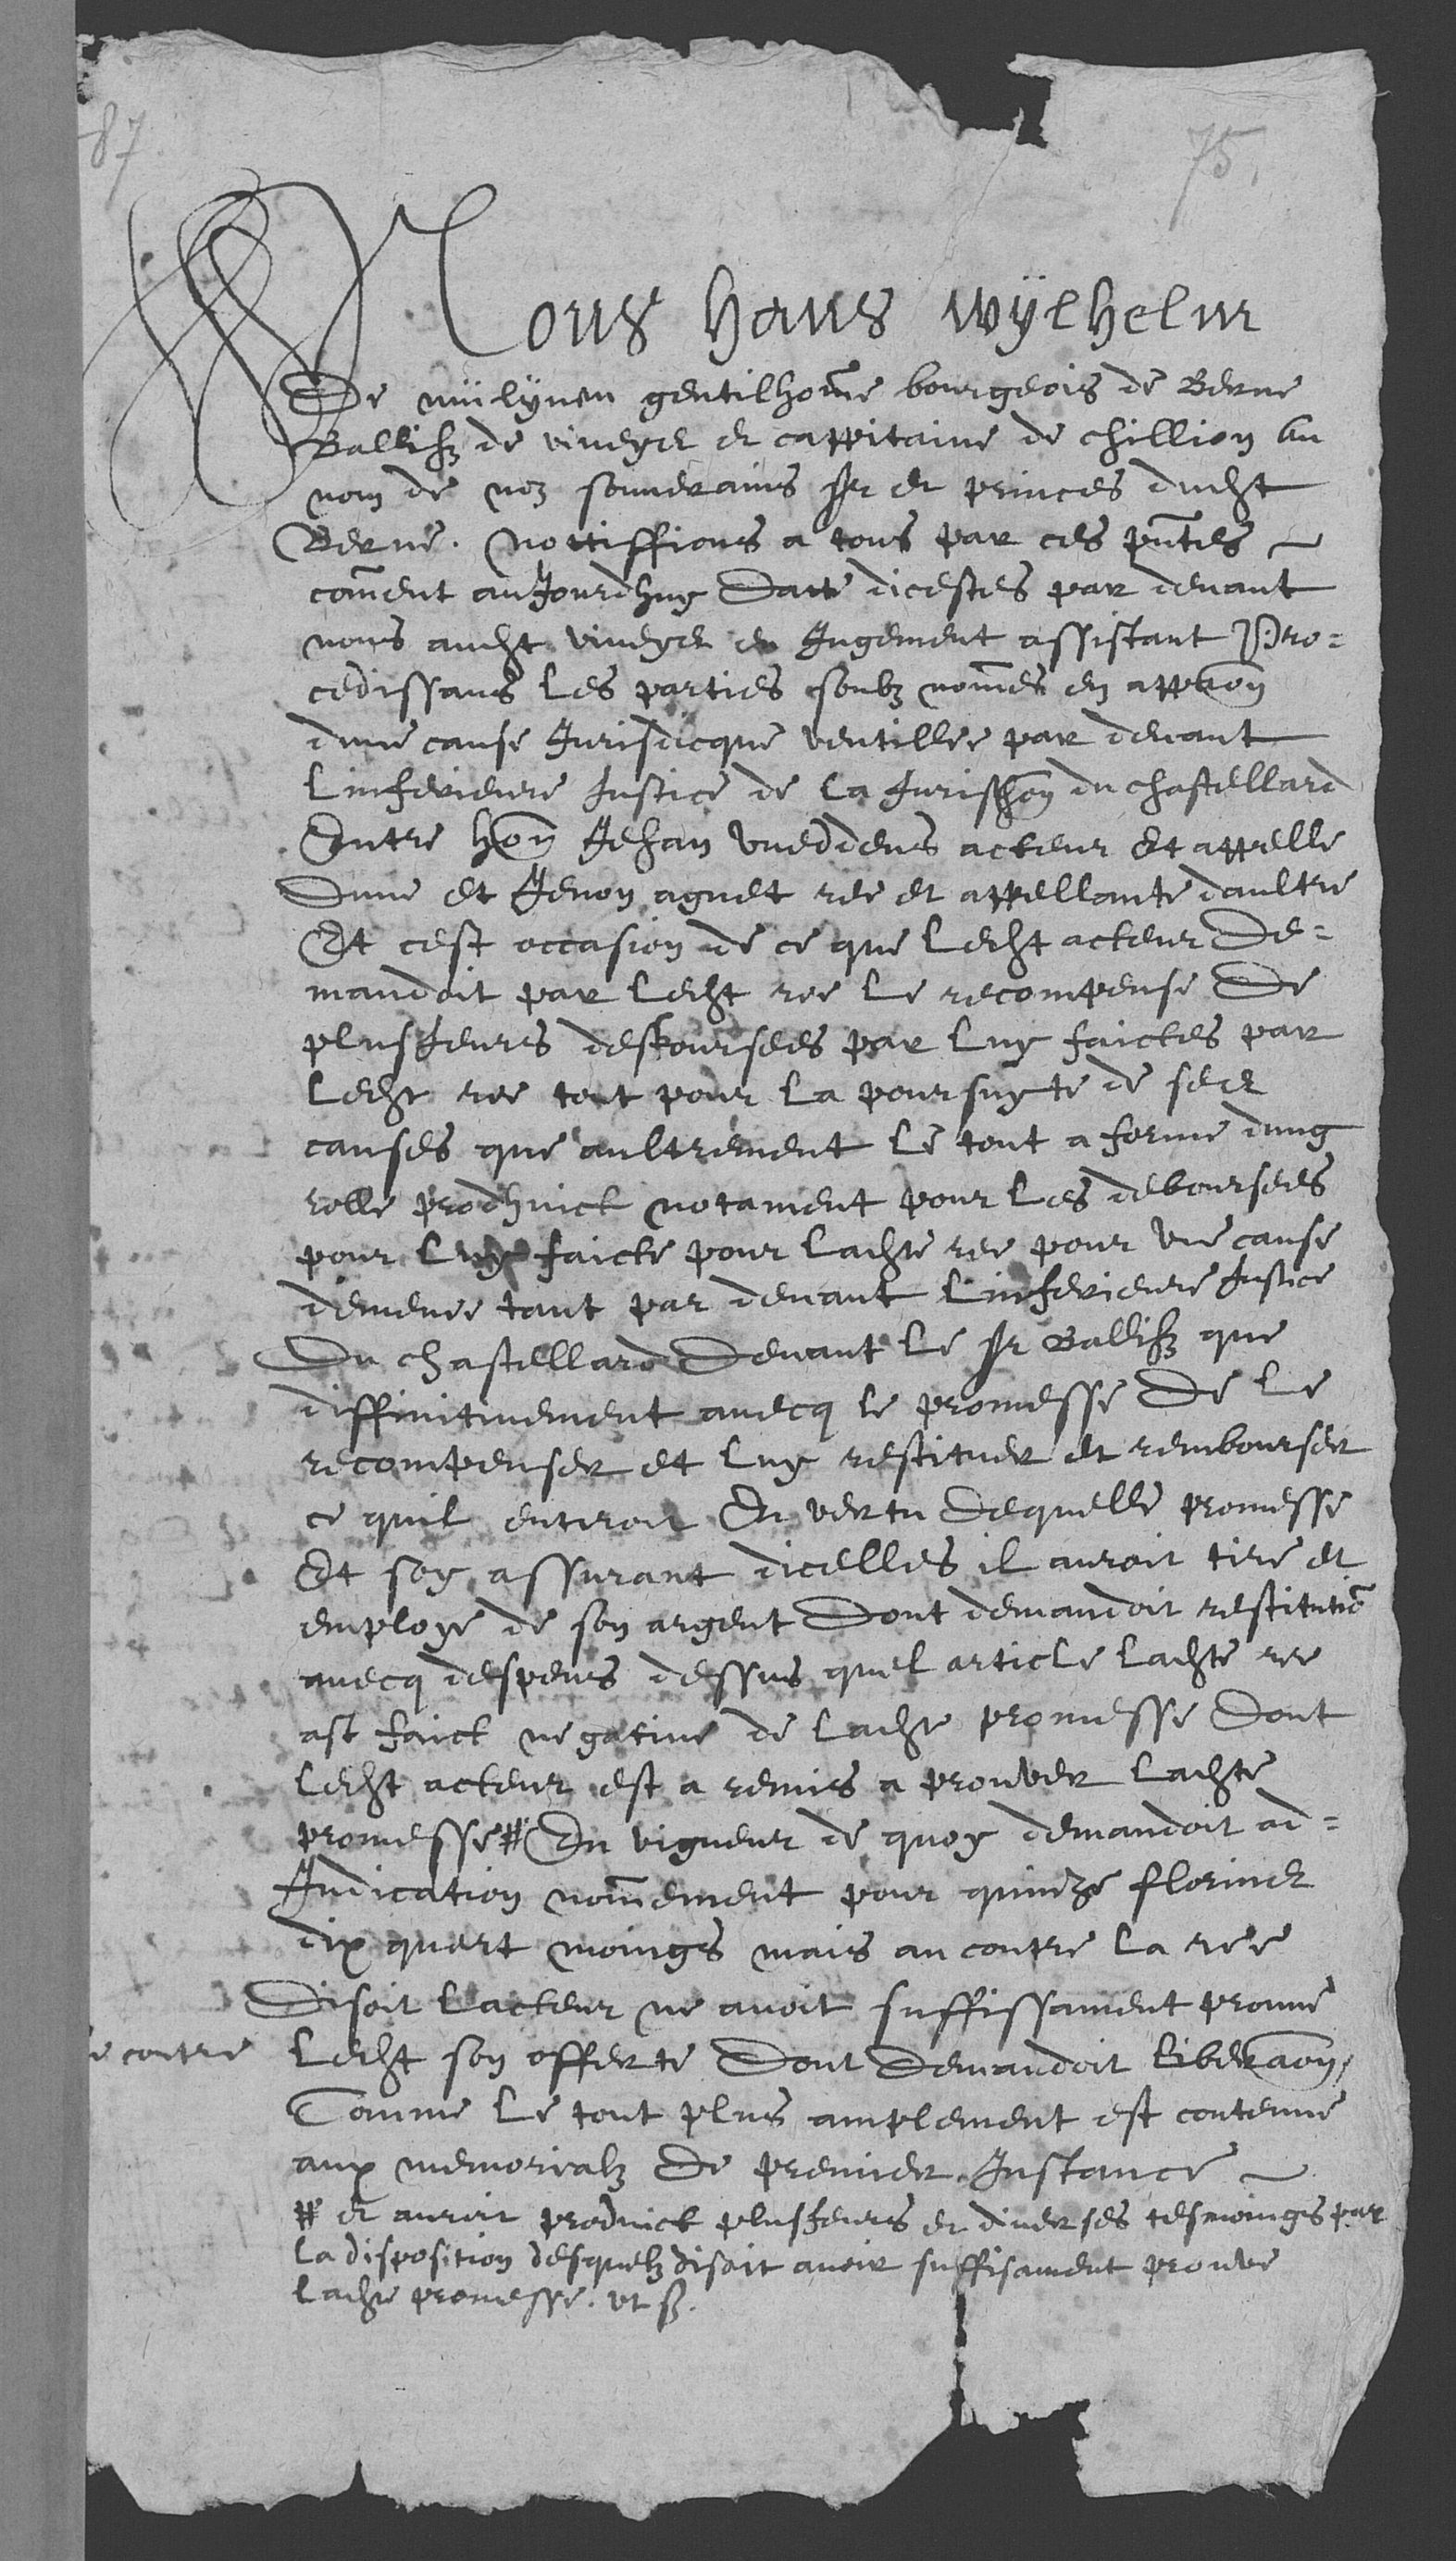 87
75
Nous hans wÿlhelm
De mülÿnen gentilhome bourgeois de Berne
Ballifz de viveyez et cappitaine de chillion Au
nom de noz souverains sr et princes dudt
Berne. Nottiffions a tous par ces pntes
coment auJourdhuy Datte dicestes par devant
nous audt viveyez en Jugement assistant Pro=
cedissans les parties soubz nomes en appaon
dune cause Jurisdicque ventillee par devant
Linferieure Justice de la Jurisdon du chastellard
Entre hon Jehan vueddens acteur Et appelle
Dune et Jenon agnet ree et appellante daultre
Et cest occasion de ce que ledt acteur De=
mandoit par ledt ree le recompense De
plusJeurs desboursees par luy faictes par
ledt ree tout pour la poursuyte de sees
causes que aultrement le tout a forme dung
rolle prodhuict notament pour les deboursees
pour luy faicte pour ladte ree pour une cause
demenee tant par devant Linferieure Justice
Du chastellard Devant le sr Ballifz que
diffinitivement avecq le promesse De le
recompenser et luy restituer et rembourser
ce quil entiroit En vertu Dequelle promesse
Et soy assurant dicelles il auroit tire et
employe de son argent Dont demandoit restitutio
avecq despens dessus quel article ladte ree
ast faict negative de ladte promesse Dont
ledt acteur est a remis a prouver ladte
promesse # En vigueur de quoy demandoit ad=
Judication nomement pour quinze florins
dix quart moings mais au contre la ree
Disoit lacteur ne avoit suffissament prouve
e contre
ledt son offerte Dont Demandoit liberaon
Comme le tout plus amplement est contenue
aux memorialz De premier Instance
# et auroit produict plusJeurs et diverses tesmoings par
la disposition desquelz disoit avoir suffisament prouve
ladte promesse. ut sz.